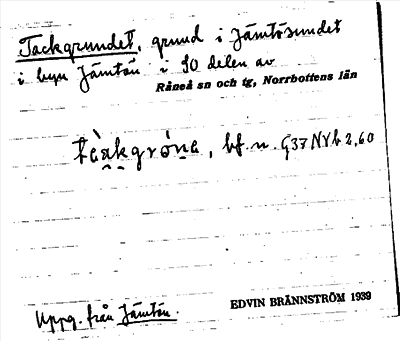 Tackgrundet, grund i Jämtösundet
i byn Jämtön i SO delen av
Råneå sn och tg, Norrbottens län
tàakgróne, bf. n. G37 NVb 2,60
Uppg. från Jämtön.
EDVIN BRÄNNSTRÖM 1939